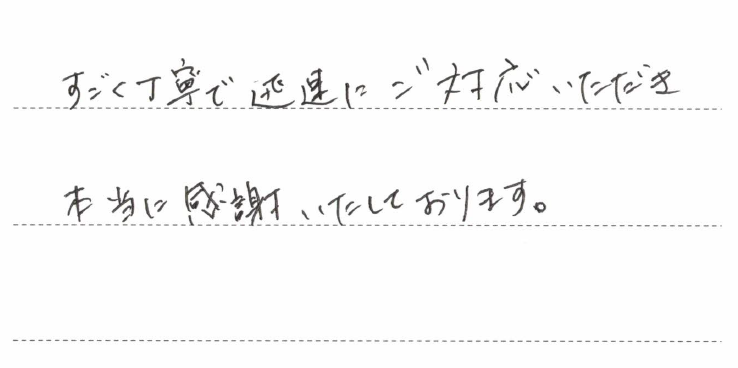 すごく丁寧で迅速にご対応いただき
本当に感謝いたしております。